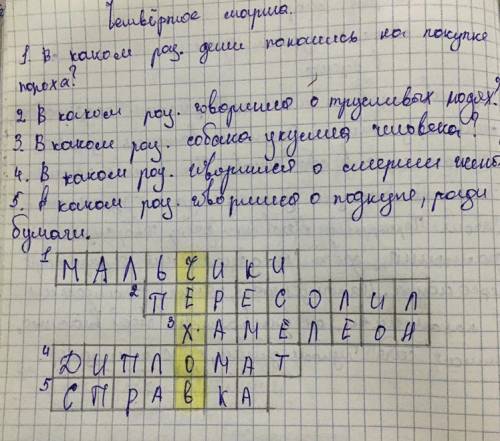 Четвёртое марта.
1. В каком рас. дети покошись на покупке
пороха?
2. В каком рас. говорится о трусливых людях?
3. В каком рас. собака укусила человека?
4. В каком рас. говорится о смерти жены
5. В каком рас. говорится о подкупе, ради
бумаги.
1 МАЛЬЧИКИ
2 ПЕРЕСОЛИЛ
3 ХАМЕЛЕОН
4 ДИПЛОМАТ
5 СПРАВКА